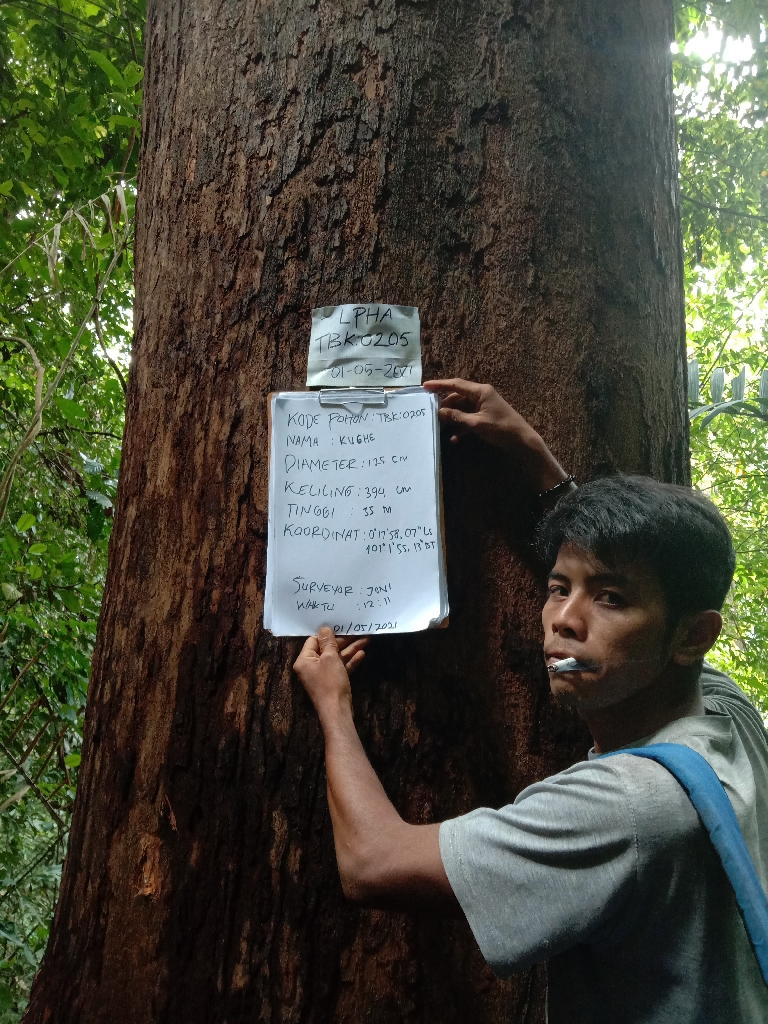 LPHA
TBK:0205
01-05-2021
KODE POHON : TBK:0205
NAMA : KUGHE
DIAMETER : 125 CM
KELILING : 394 CM
TINGGI : 35 M
KOORDINAT : 0°17'58,07" LS
101°1'55,13" BT
SURVEYOR : JONI
WAKTU : 12:11
01/05/2021